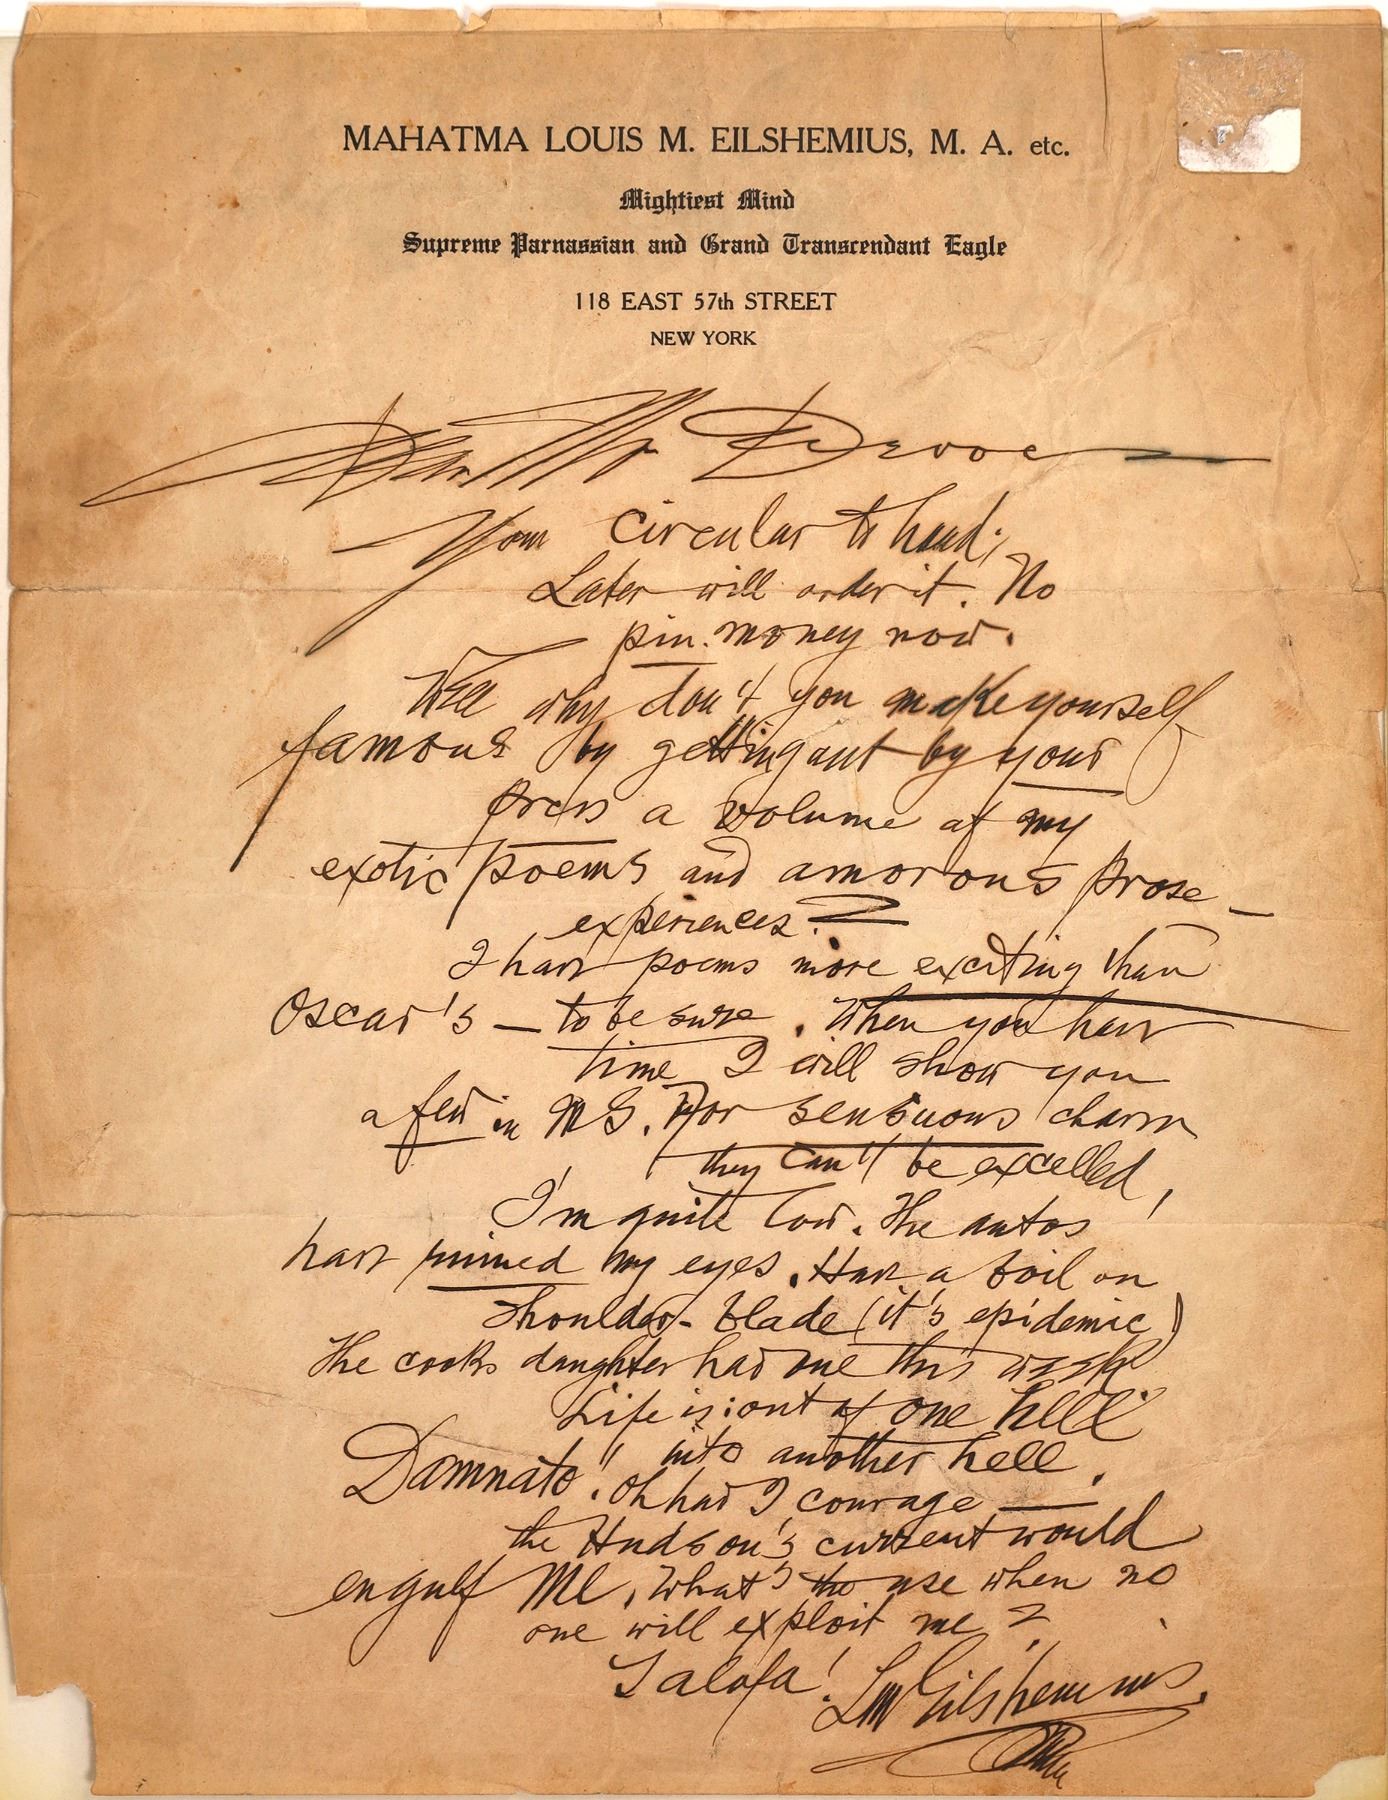 MAHATMA LOUIS M. EILSHEMIUS, M. A. etc.
Mightiest Mind
Supreme Parnassian and Grand Transcendant Eagle
118 EAST 57th STREET
NEW YORK
Dear Mr Devoe
Your circular to hand;
Later will order it. No
pin-money now.
Well why don't you make yourself
famous by getting out by your
press a volume of my
exotic poems and amorous prose-
experiences?
I have poems more exciting than
Oscar's — to be sure. When you have
time I will show you
a few in MS. For sensuous charm
they can't be excelled!
I'm quite low. The autos
have ruined my eyes. Have a boil on
shoulder-blade (it's epidemic)
The cooks daughter had one this week
Life is: out of one hell
into another hell.
Damnato! Oh had I courage —
the Hudson's current would
engulf Me. What's the use when no
one will exploit me?
Talofa! LM Eilshemius.